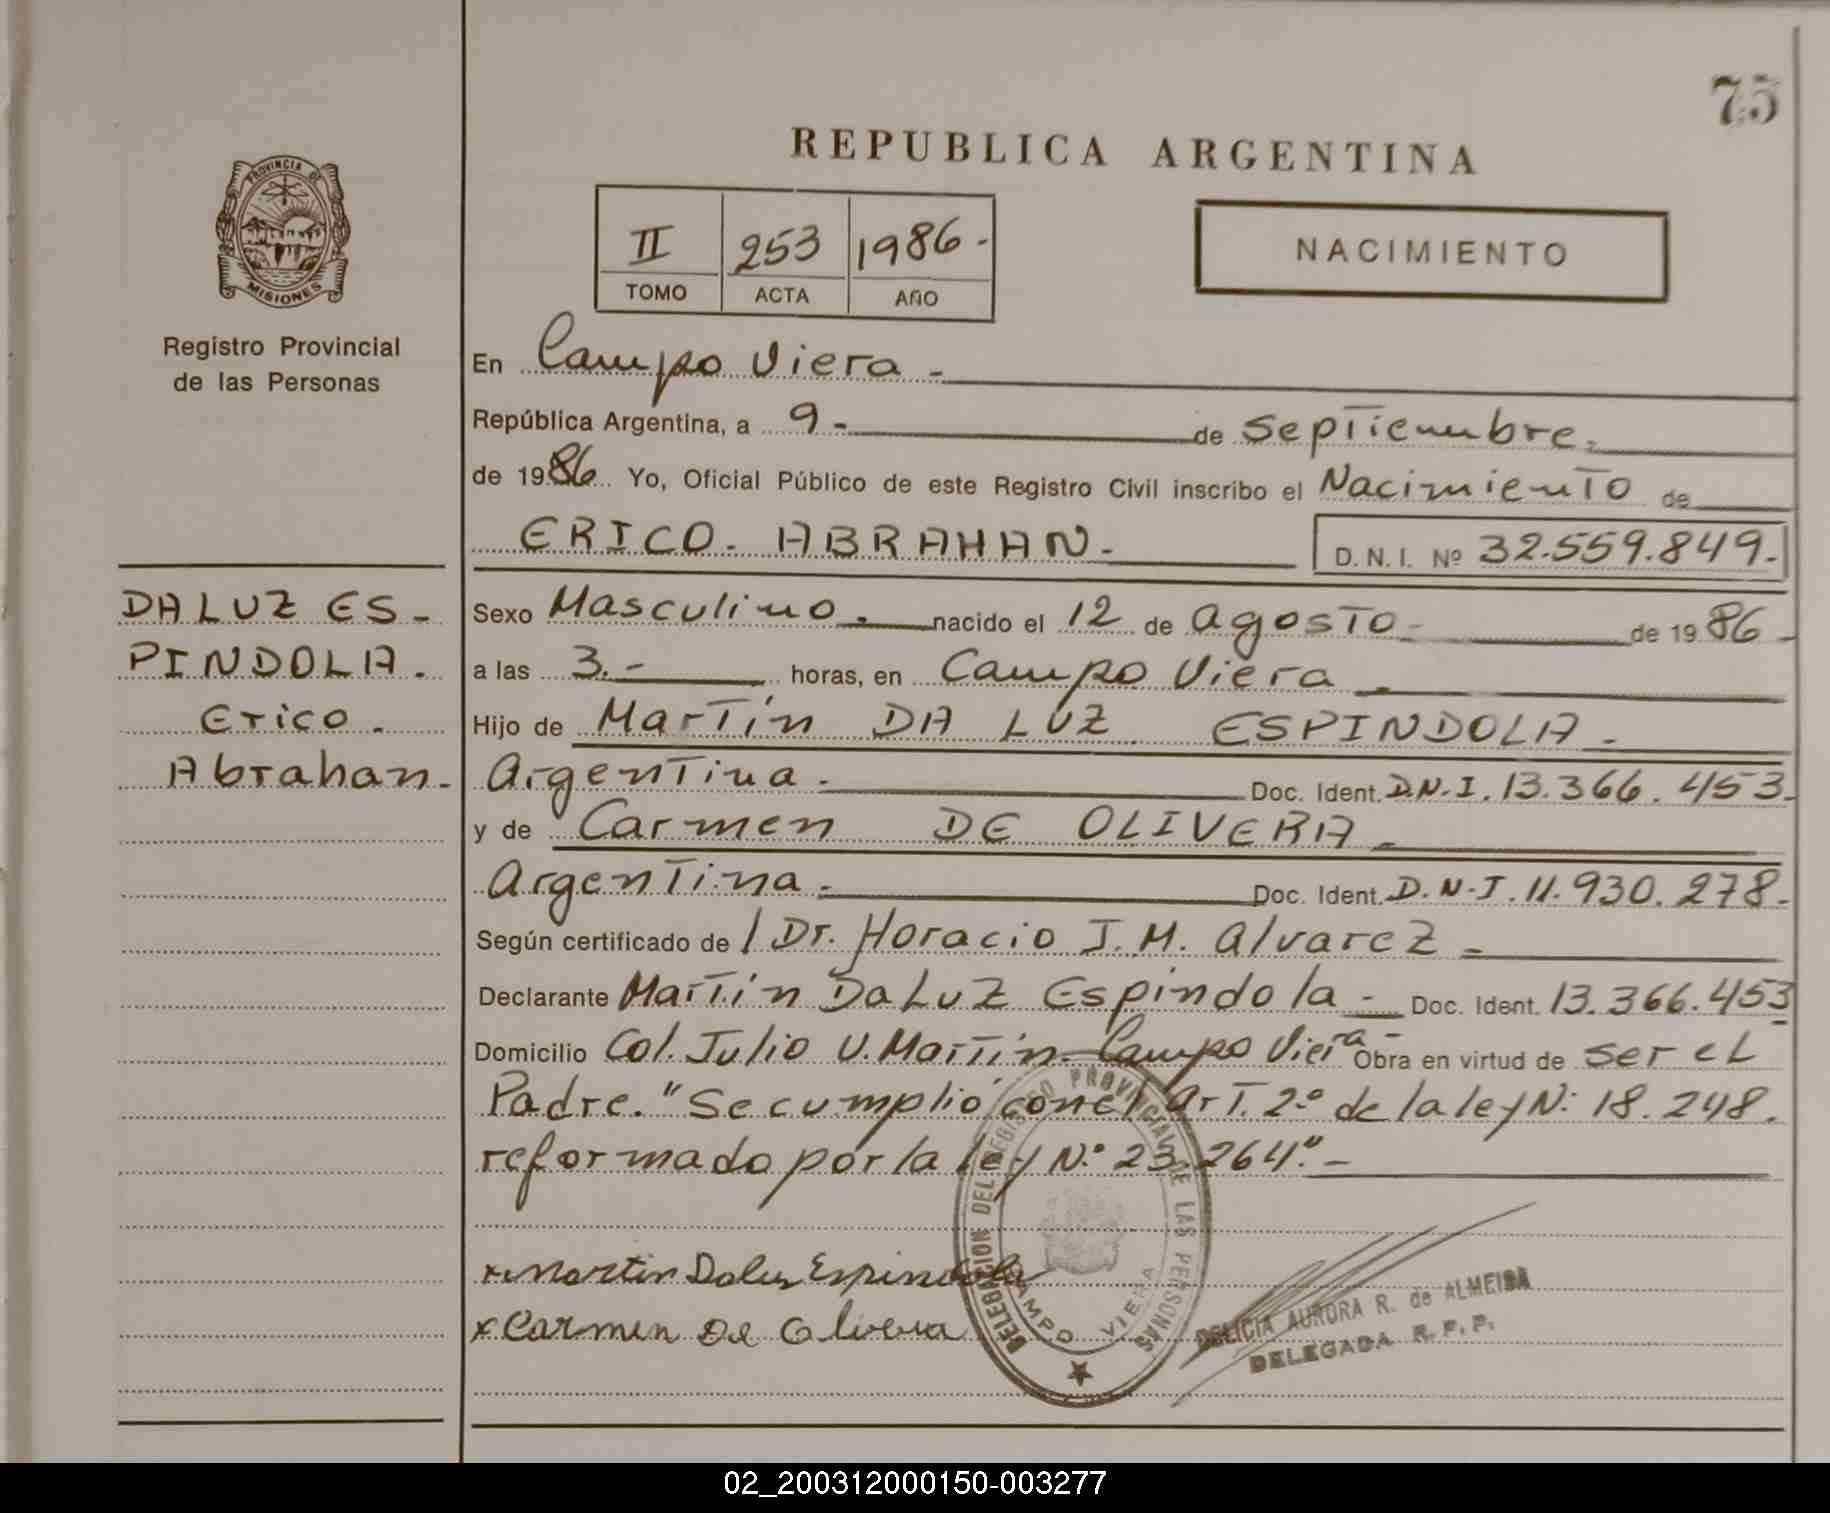 75
REPUBLICA ARGENTINA
II 253 1986.-
TOMO ACTA AÑO
NACIMIENTO
PROVINCIA DE
MISIONES
Registro Provincial
de las Personas
DA LUZ ES-
PINDOLA.
Erico.
Abrahan.-
En Campo Viera.-
República Argentina, a 9.- de septiembre.
de 1986 Yo, Oficial Público de este Registro Civil inscribo el Nacimiento de
ERICO. ABRAHAN.- D.N.I. Nº 32.559.849.-
Sexo Masculino.- nacido el 12 de agosto.- de 1986-
a las 3.- horas, en Campo Viera.-
Hijo de Martín DA LUZ ESPINDOLA.-
Argentina.- Doc. Ident. D.N.I. 13.366.453.-
y de Carmen DE OLIVERA.-
Argentina.- Doc. Ident. D.N.I. 11.930.278.-
Según certificado de / Dr. Horacio J.M. Alvarez.-
Declarante Martín Da Luz Espindola.- Doc. Ident. 13.366.453
Domicilio Col. Julio U. Martín- Campo Viera- Obra en virtud de ser el
Padre. "Se cumplió con el Art. 2º de la ley N: 18.248.
reformado por la ley N.º 23.264".-
x Martin Daluz Espindola
x Carmen De Olivera
DELEGACION DEL REGISTRO PROVINCIAL DE LAS PERSONAS
CAMPO VIERA
DELICIA AURORA R. de ALMEIDA
DELEGADA R. P. P.
02_200312000150-003277